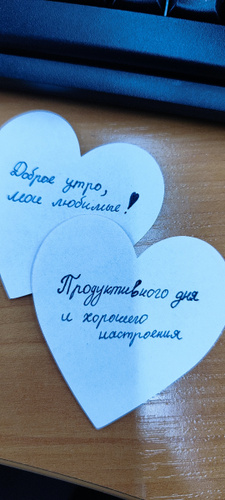 Доброе утро,
мои любимые!
Продуктивного дня
и хорошего
настроения